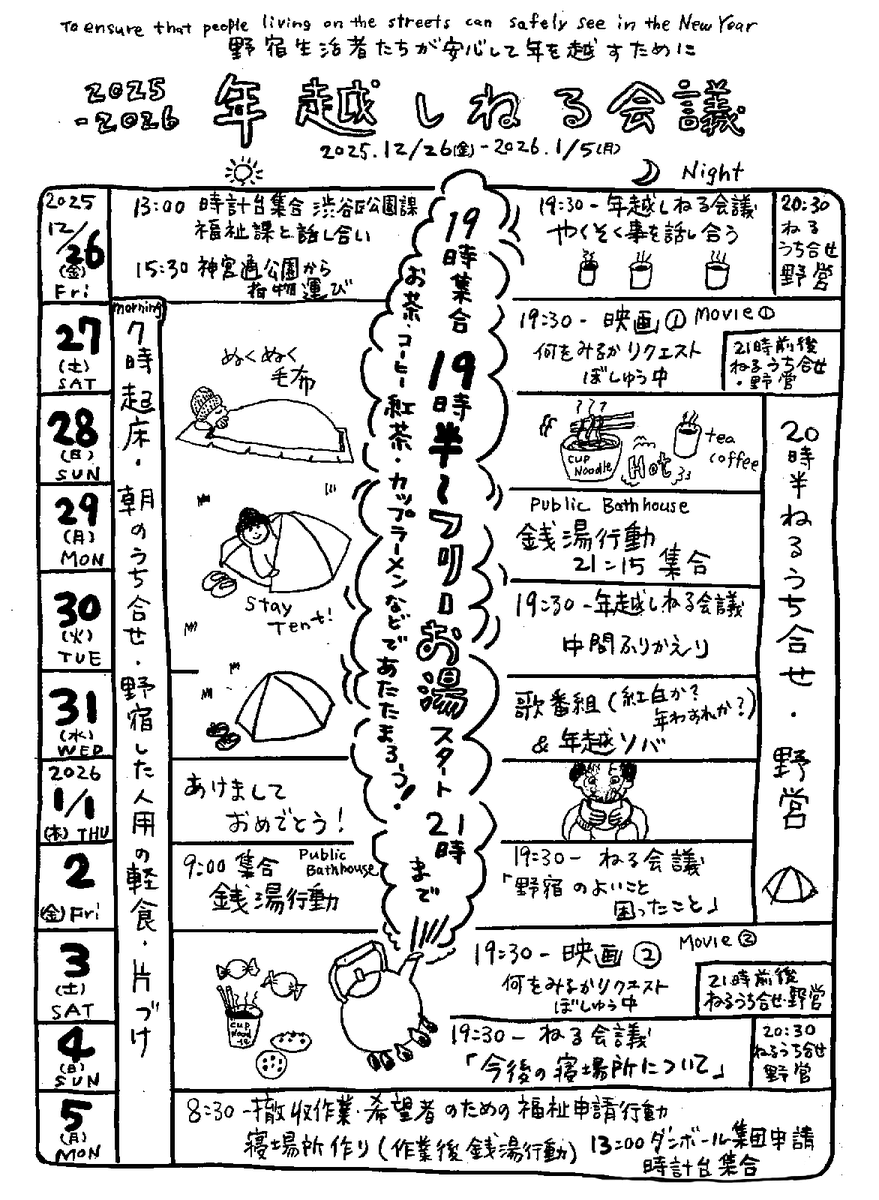 To ensure that people living on the streets can safely see in the New Year
野宿生活者たちが安心して年を越すために
2025
-2026
年越しねる会議
2025.12/26(金)-2026.1/5(月)
Night
2025
12/26
(金)
Fri
13:00 時計台集合 渋谷区公園課
福祉課と話し合い
15:30 神宮通公園から
荷物運び
19:30-年越しねる会議
やくそく事を話し合う
20:30
ねる
うち合せ
野営
morning
7時起床・朝のうち合せ・野宿した人用の軽食・片づけ
19時集合 19時半~フリーお湯スタート 21時まで
お茶・コーヒー紅茶・カップラーメンなどであたたまろう!
27
(土)
SAT
ぬくぬく
毛布
19:30-映画① Movie①
何をみるかリクエスト
ぼしゅう中
21時前後
ねるうち合せ
・野営
28
(日)
SUN
CUP
Noodle
Hot
tea
coffee
20時半ねるうち合せ・野営
29
(月)
MON
Stay
Tent!
Public Bathhouse
銭湯行動
21:15 集合
30
(火)
TUE
19:30-年越しねる会議
中間ふりかえり
31
(水)
WED
歌番組(紅白か?
年わすれか?)
& 年越ソバ
2026
1/1
(木) THU
あけまして
おめでとう!
2
(金) Fri
9:00 集合 Public
Bathhouse
銭湯行動
19:30- ねる会議
「野宿のよいこと
困ったこと」
3
(土)
SAT
CUP
Nood
-le
19:30-映画② Movie②
何をみるかリクエスト
ぼしゅう中
21時前後
ねるうち合せ・野営
4
(日)
SUN
19:30- ねる会議
「今後の寝場所について」
20:30
ねるうち合せ
野営
5
(月)
MON
8:30-撤収作業・希望者のための福祉申請行動
寝場所作り(作業後銭湯行動) 13:00ダンボール集団申請
時計台集合